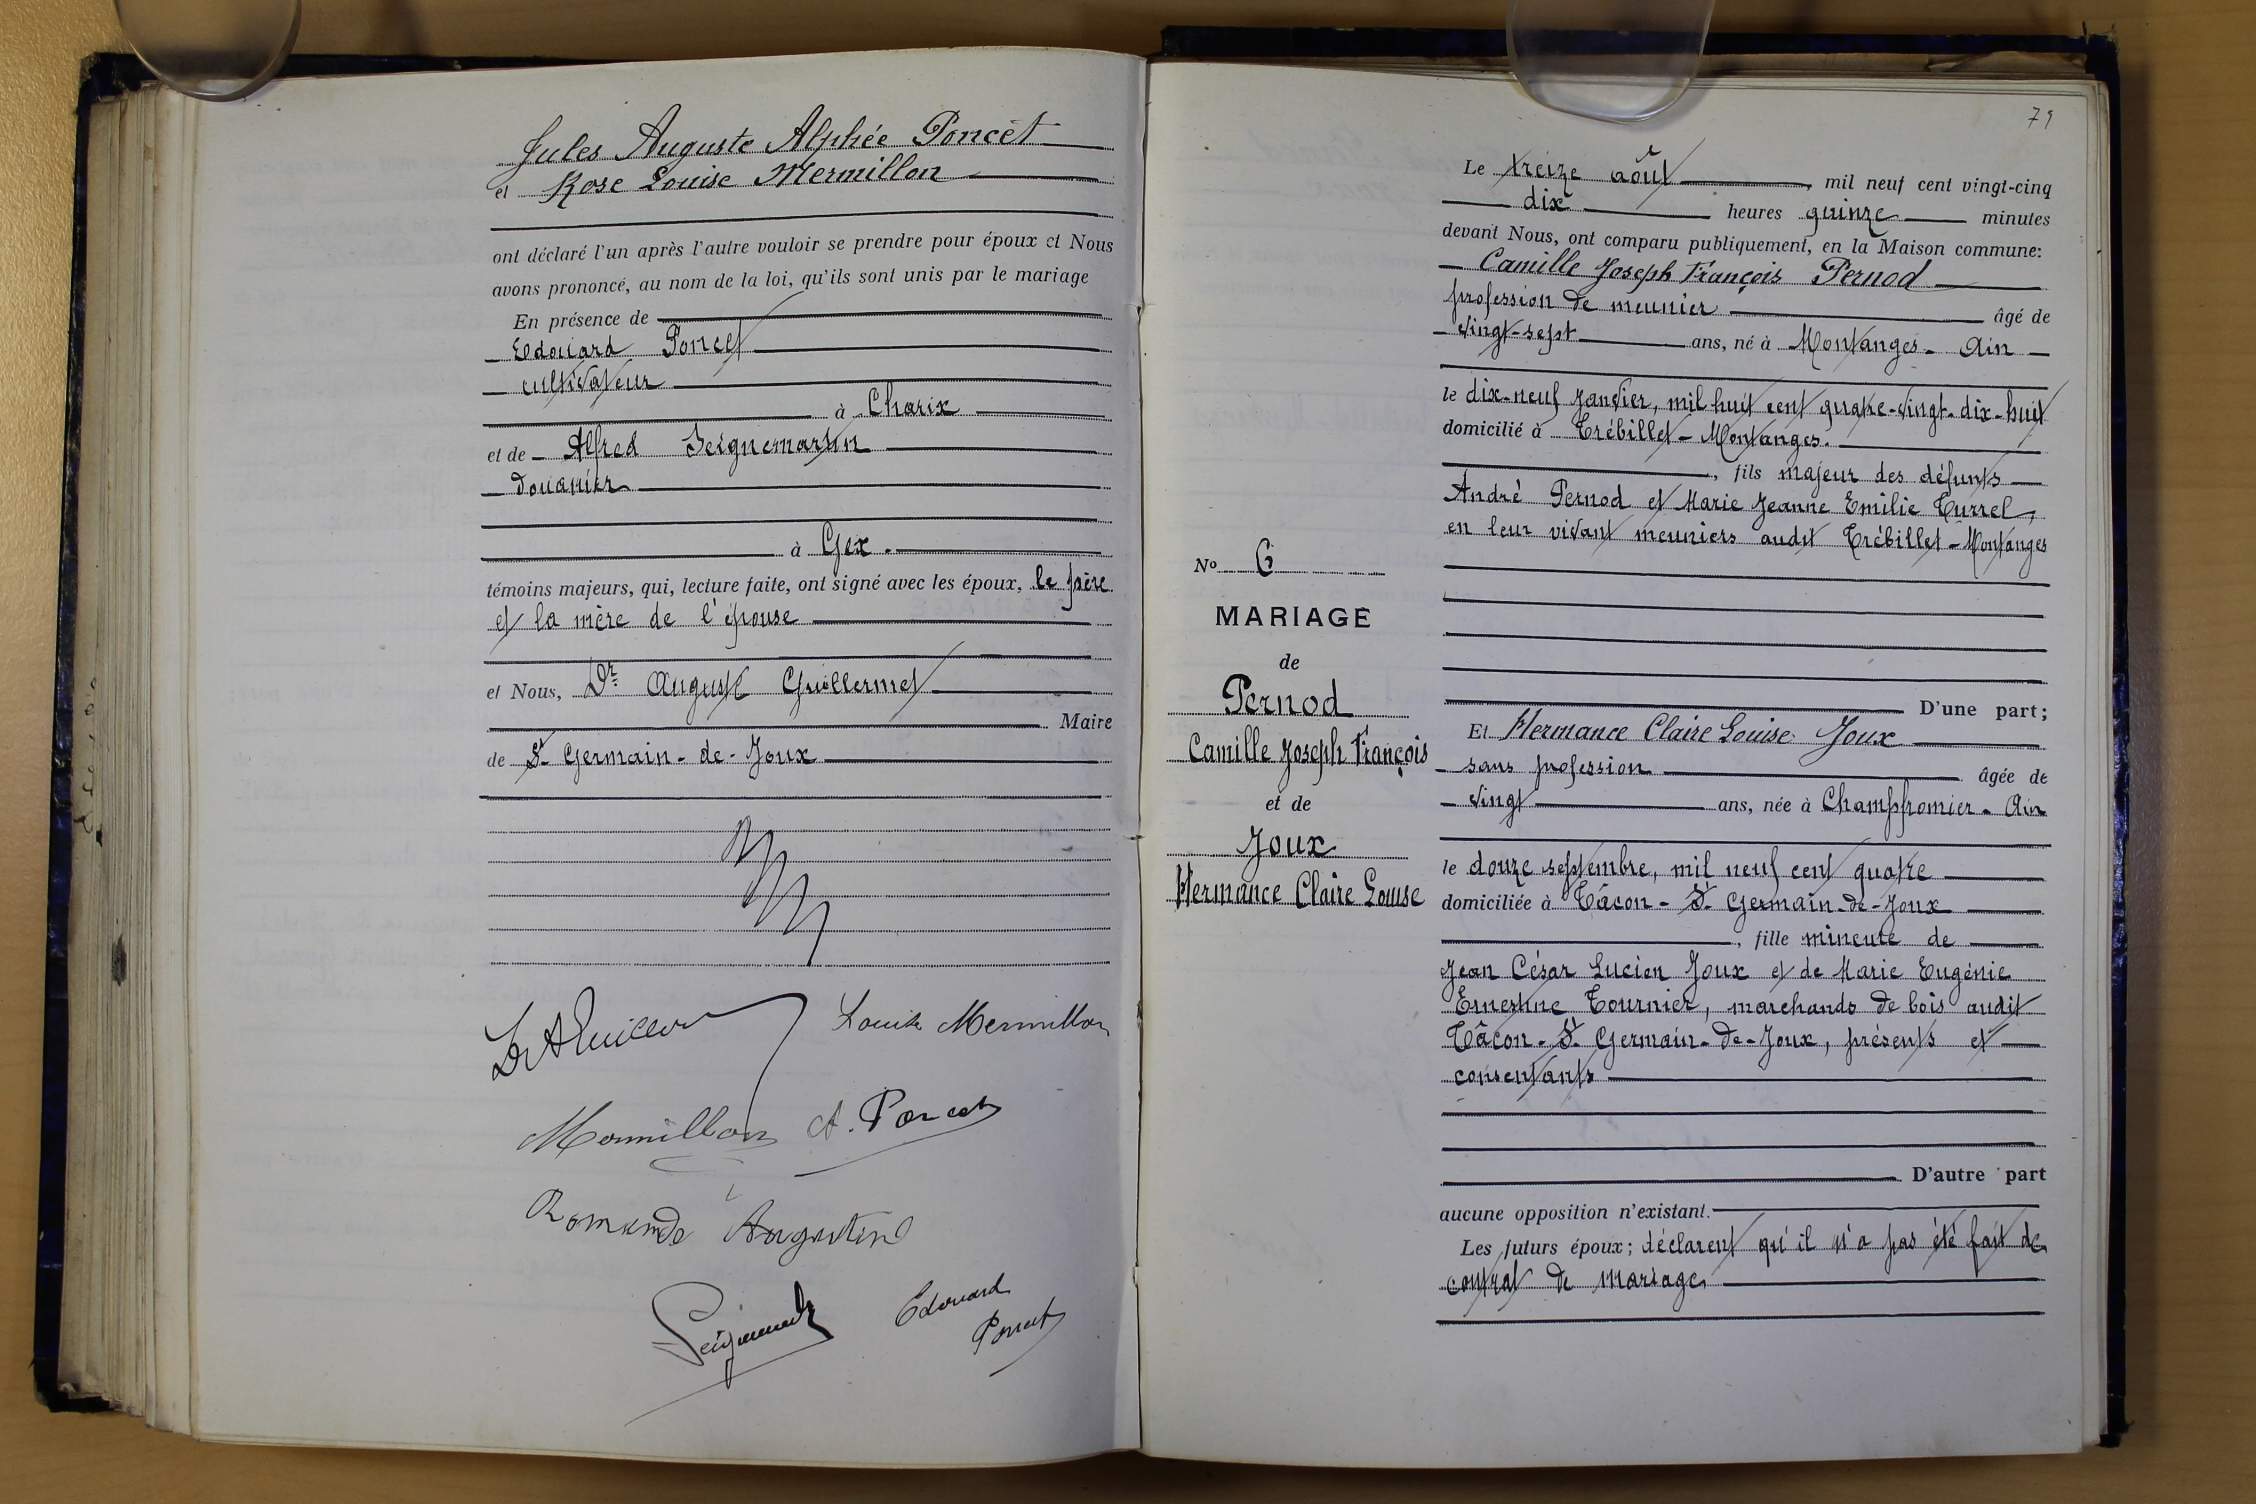 Jules Auguste Alphée Poncet
et Rose Louise Mermillon
ont déclaré l'un après l'autre vouloir se prendre pour époux et Nous
avons prononcé, au nom de la loi, qu'ils sont unis par le mariage
En présence de
Edouard Poncet
cultivateur
à Charix
et de Alfred Seignemartin
douanier
à Gex.
témoins majeurs, qui, lecture faite, ont signé avec les époux, le père
et la mère de l'épouse
et Nous, Dr Auguste Guillermet
Maire
de St Germain-de-Joux
Louise Mermillon
Mermillon A. Poncet
Romande Augustine
Edouard
Poncet
79
Le treize août mil neuf cent vingt-cinq
dix heures quinze minutes
devant Nous, ont comparu publiquement, en la Maison commune:
Camille Joseph François Pernod
profession de meunier âgé de
vingt-sept ans, né à Montanges - Ain
le dix-neuf janvier, mil huit cent quatre-vingt-dix-huit
domicilié à Trébillet - Montanges.
, fils majeur des défunts
André Pernod et Marie Jeanne Emilie Turrel,
en leur vivant meuniers audit Trébillet - Montanges
D'une part;
Et Hermance Claire Louise Joux
sans profession âgée de
vingt ans, née à Champfromier - Ain
le douze septembre, mil neuf cent quatre
domiciliée à Tâcon - St Germain-de-Joux
, fille mineure de
Jean César Lucien Joux et de Marie Eugénie
Ernestine Tournier, marchands de bois audit
Tâcon - St Germain-de-Joux, présents et
consentants
D'autre part
aucune opposition n'existant.
Les futurs époux; déclarent qu'il n'a pas été fait de
contrat de mariage
No 6
MARIAGE
de
Pernod
Camille Joseph François
et de
Joux
Hermance Claire Louise